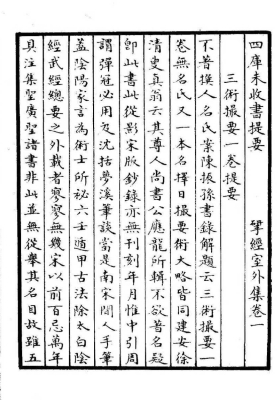 四庫未收書提要　揅經室外集卷一
三術撮要一卷提要
不著撰人名氏案陳振孫書錄解題云三術撮要一
卷無名氏又一本名擇日撮要術大略皆同建安徐
清叟真翁云其尊人尚書公應龍所輯不欲著名殆
即此書此從影宋版鈔錄亦無刊刻年月惟中引周
謂彈冠必用戈沈括夢溪筆談當是南宋閩人手筆
蓋陰陽家言為術士所祕六壬遁甲古法除太白陰
經武經總要之外載者寥寥無幾宋以前百忌萬年
具注集聖廣聖諸書非此並無從舉其名目故雖五